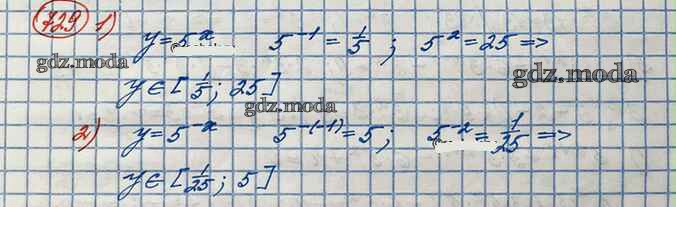 729 1) y = 5^x 5^-1 = 1/5 ; 5^2 = 25 =>
gdz.moda
gdz.moda
y ∈ [1/5 ; 25]
gdz.moda
2) y = 5^-x 5^-(-1) = 5 ; 5^-2 = 1/25 =>
y ∈ [1/25 ; 5]